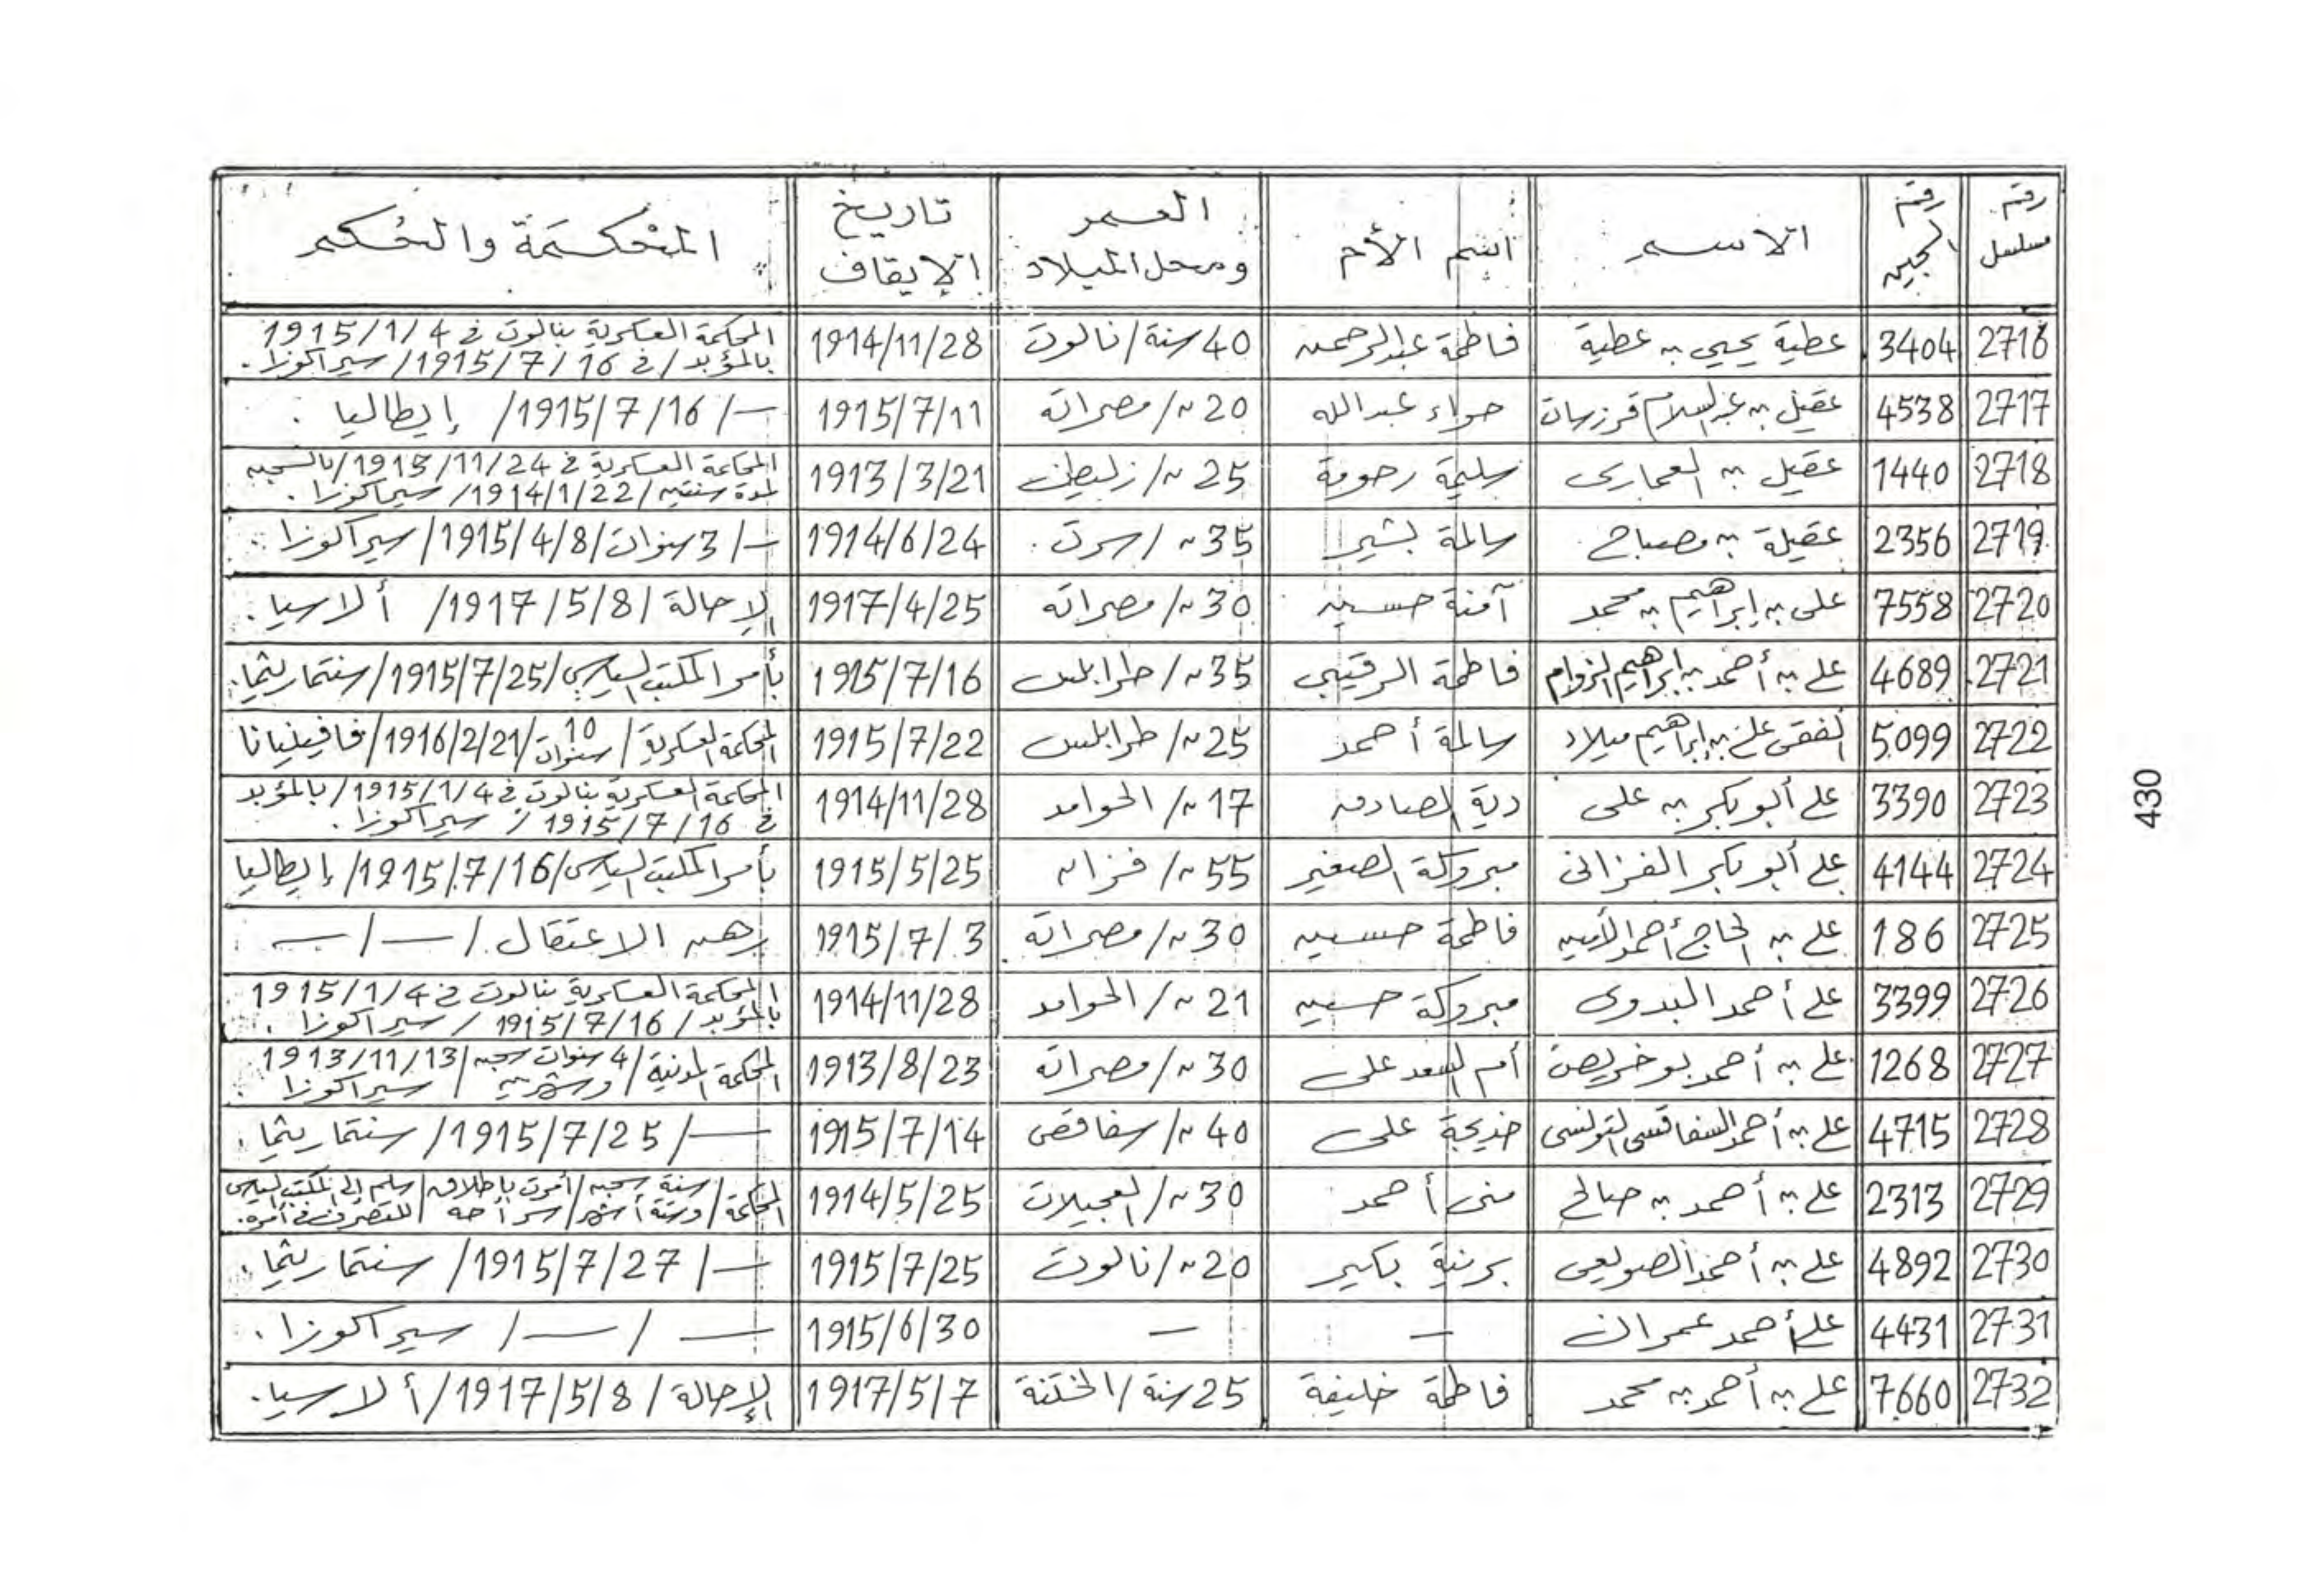 رقم مسلسل | رقم السجين | الاسم | اسم الأم | العمر ومحل الميلاد | تاريخ الإيقاف | المحكمة والحكم
2716 | 3404 | عطية يحيى بن عطية | فاطمة عبدالرحمن | 40 سنة/نالوت | 1914/11/28 | المحكمة العسكرية بنالوت في 1915/1/4 بالمؤبد/في 1915/7/16/سيراكوزا.
2717 | 4538 | عقيل بن عبدالسلام | حواء عبدالله | 20 〃/مصراتة | 1915/7/11 | —/1915/7/16/ إيطاليا.
2718 | 1440 | عقيل بن العماري | سليمة رحومة | 25 〃/زليطن | 1913/3/21 | المحاكمة العسكرية في 1913/11/24/بالسجن لمدة سنتين/1914/1/22/سيراكوزا.
2719 | 2356 | عقيلة بن مصباح | سالمة بشير | 35 〃/سرت. | 1914/6/24 | —/3 سنوات/1915/4/8/سيراكوزا.
2720 | 7558 | على بن إبراهيم بن محمد | آمنة حسين | 30 〃/مصراتة | 1917/4/25 | الإحالة/1917/5/8/ ألاسيا.
2721 | 4689 | على بن أحمد بن إبراهيم | فاطمة الرقيبى | 35 〃/طرابلس | 1915/7/16 | بأمر المكتب السياسي/1915/7/25/سنتماريثما.
2722 | 5099 | الفقى على بن إبراهيم ميلاد | سالمة أحمد | 25 〃/طرابلس | 1915/7/22 | المحكمة العسكرية/10 سنوات/1916/2/21/فافينيانا
2723 | 3390 | على أبو بكر بن على | دية الصادق | 17 〃/الحوامد | 1914/11/28 | المحكمة العسكرية بنالوت في 1915/1/4/بالمؤبد في 1915/7/16/سيراكوزا.
2724 | 4144 | على أبو بكر الفزانى | مبروكة الصغير | 55 〃/فزان | 1915/5/25 | بأمر المكتب السياسي/1915/7/16/إيطاليا
2725 | 186 | على بن الحاج أحمد الأمين | فاطمة حسين | 30 〃/مصراتة | 1915/7/3 | رهن الاعتقال/—/—
2726 | 3399 | على أحمد البدوى | مبروكة حسين | 21 〃/الحوامد | 1914/11/28 | المحكمة العسكرية بنالوت في 1915/1/4 بالمؤبد/1915/7/16/سيراكوزا.
2727 | 1268 | على بن أحمد بو خريص | أم السعد على | 30 〃/مصراتة | 1913/8/23 | المحكمة المدنية/4 سنوات سجن وشهرين/1913/11/13 سيراكوزا.
2728 | 4715 | على بن أحمد السفاقسى التونسى | خديجة على | 40 〃/سفاقص | 1915/7/14 | —/1915/7/25/ سنتماريثما.
2729 | 2313 | على بن أحمد بن صالح | منى أحمد | 30 〃/العجيلات | 1914/5/25 | المحكمة/سنة سجن وستة أشهر/أمرت بإطلاق سراحه/سلم إلى المكتب السياسى للتصرف في أمره.
2730 | 4892 | على بن أحمد الصويعى | برنية بكير | 20 〃/نالوت | 1915/7/25 | —/1915/7/27/ سنتماريثما.
2731 | 4431 | على أحمد عمران | — | — | 1915/6/30 | —/—/ سيراكوزا.
2732 | 7660 | على بن أحمد بن محمد | فاطمة خليفة | 25 سنة/الختنة | 1917/5/7 | الإحالة/1917/5/8/ألاسيا.
430